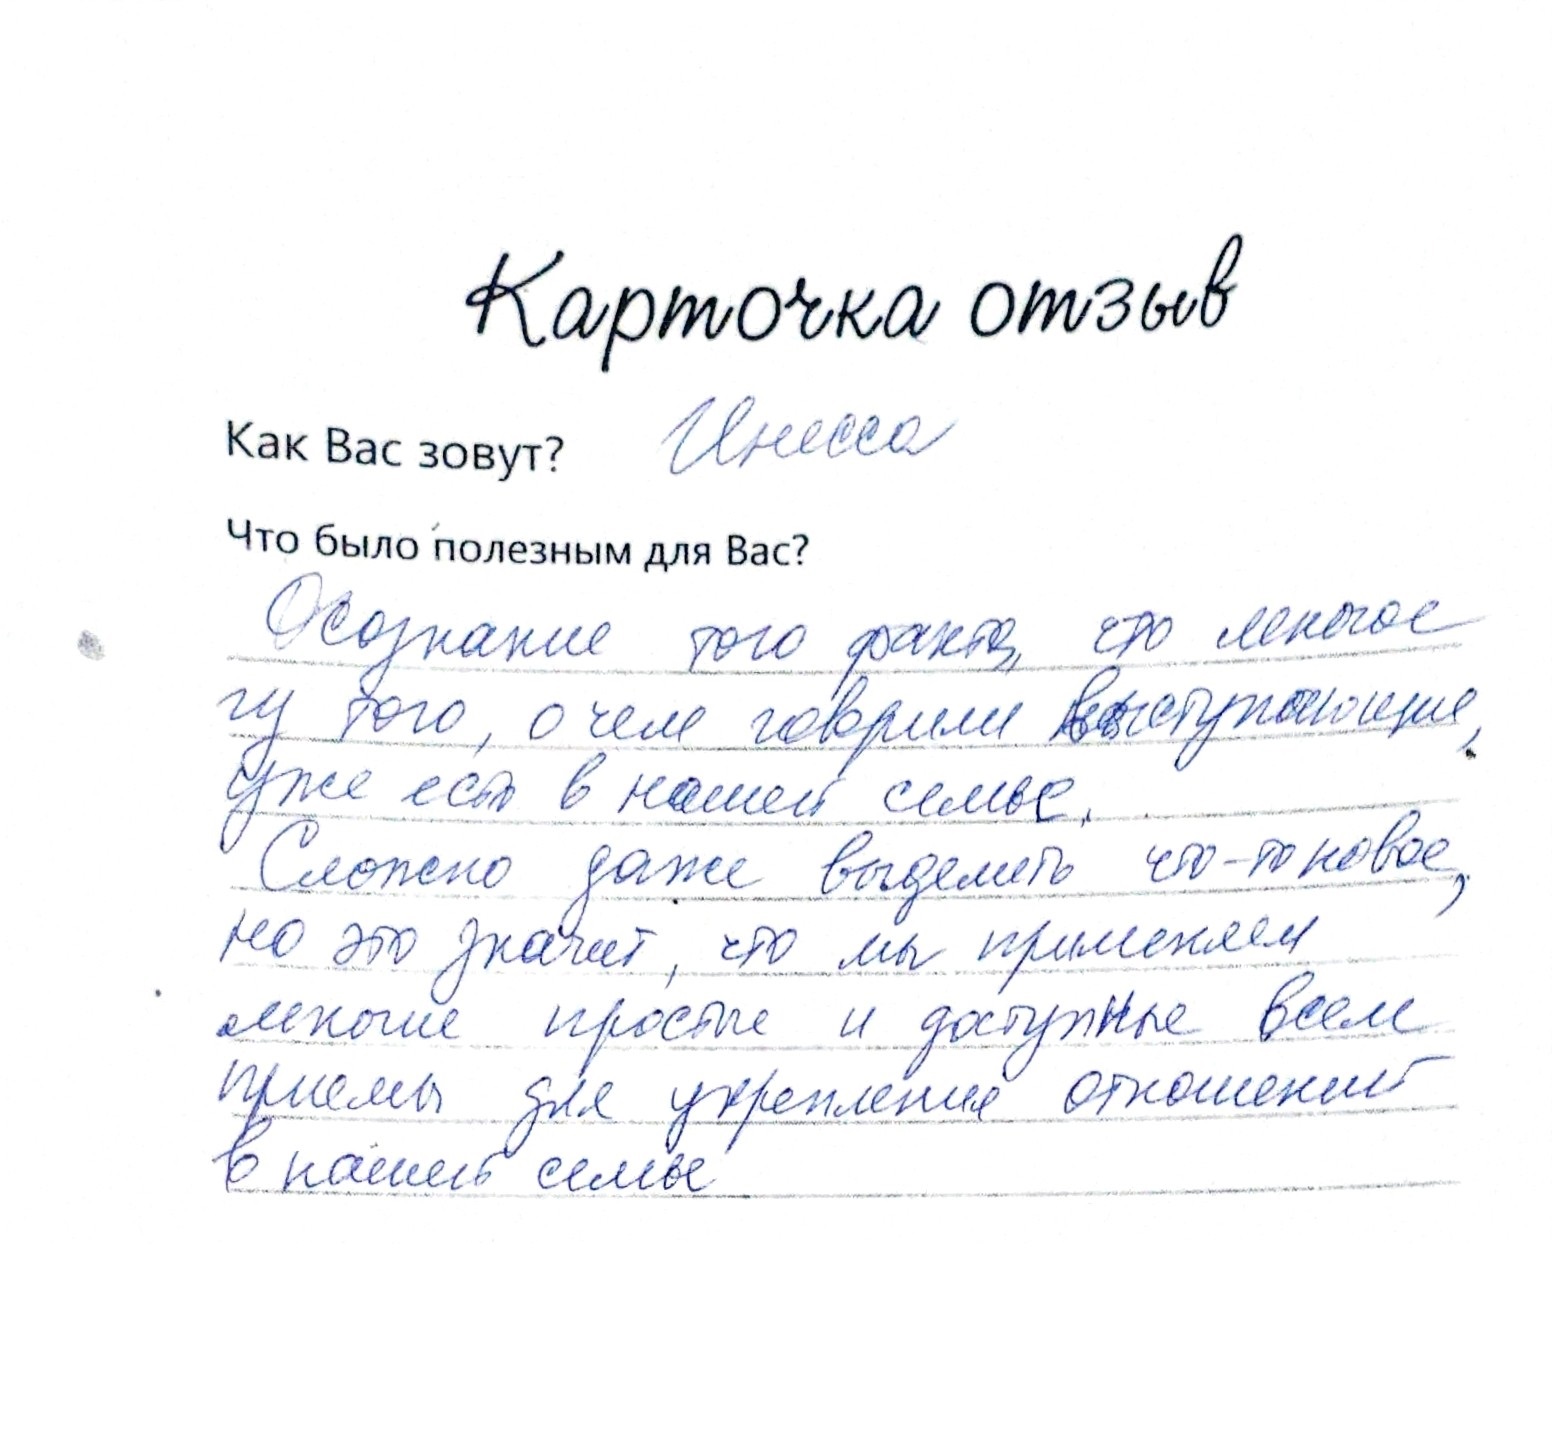 Карточка отзыв
Как Вас зовут? Инесса
Что было полезным для Вас?
Осознание того факта, что многое
из того, о чем говорили выступающие,
уже есть в нашей семье.
Сложно даже выделить что-то новое,
но это значит, что мы применяем
многие простые и доступные всем
приемы для укрепления отношений
в нашей семье